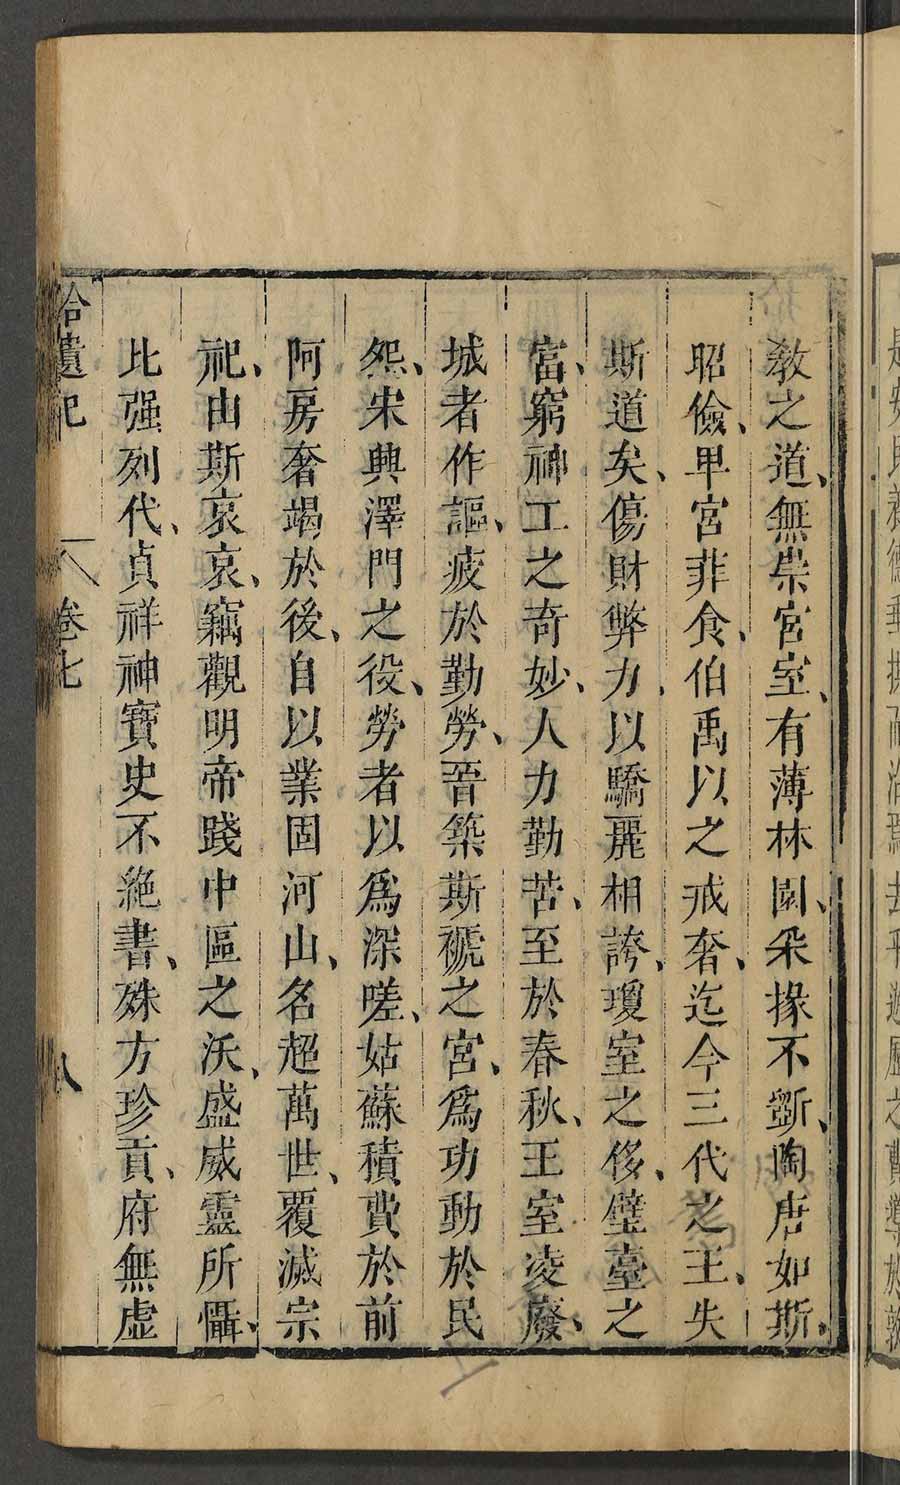 教之道、無崇宮室、有薄林園、采椽不斵、陶唐如斯、
昭儉、卑宮菲食、伯禹以之戒奢、迄今三代之王、失
斯道矣、傷財弊力、以驕麗相誇、瓊室之侈、璧臺之
富、窮神工之奇妙、人力勤苦、至於春秋、王室凌廢、
城者作謳、疲於勤勞、晉築斯褫之宮、爲功動於民
怨、宋興澤門之役、勞者以爲深嗟、姑蘇積費於前
阿房奢竭於後、自以業固河山、名超萬世、覆滅宗
祀、由斯哀哀、竊觀明帝踐中區之沃、盛威靈所懾、
比强列代、貞祥神寶史不絶書、殊方珍貢、府無虛
拾遺記 卷七 八